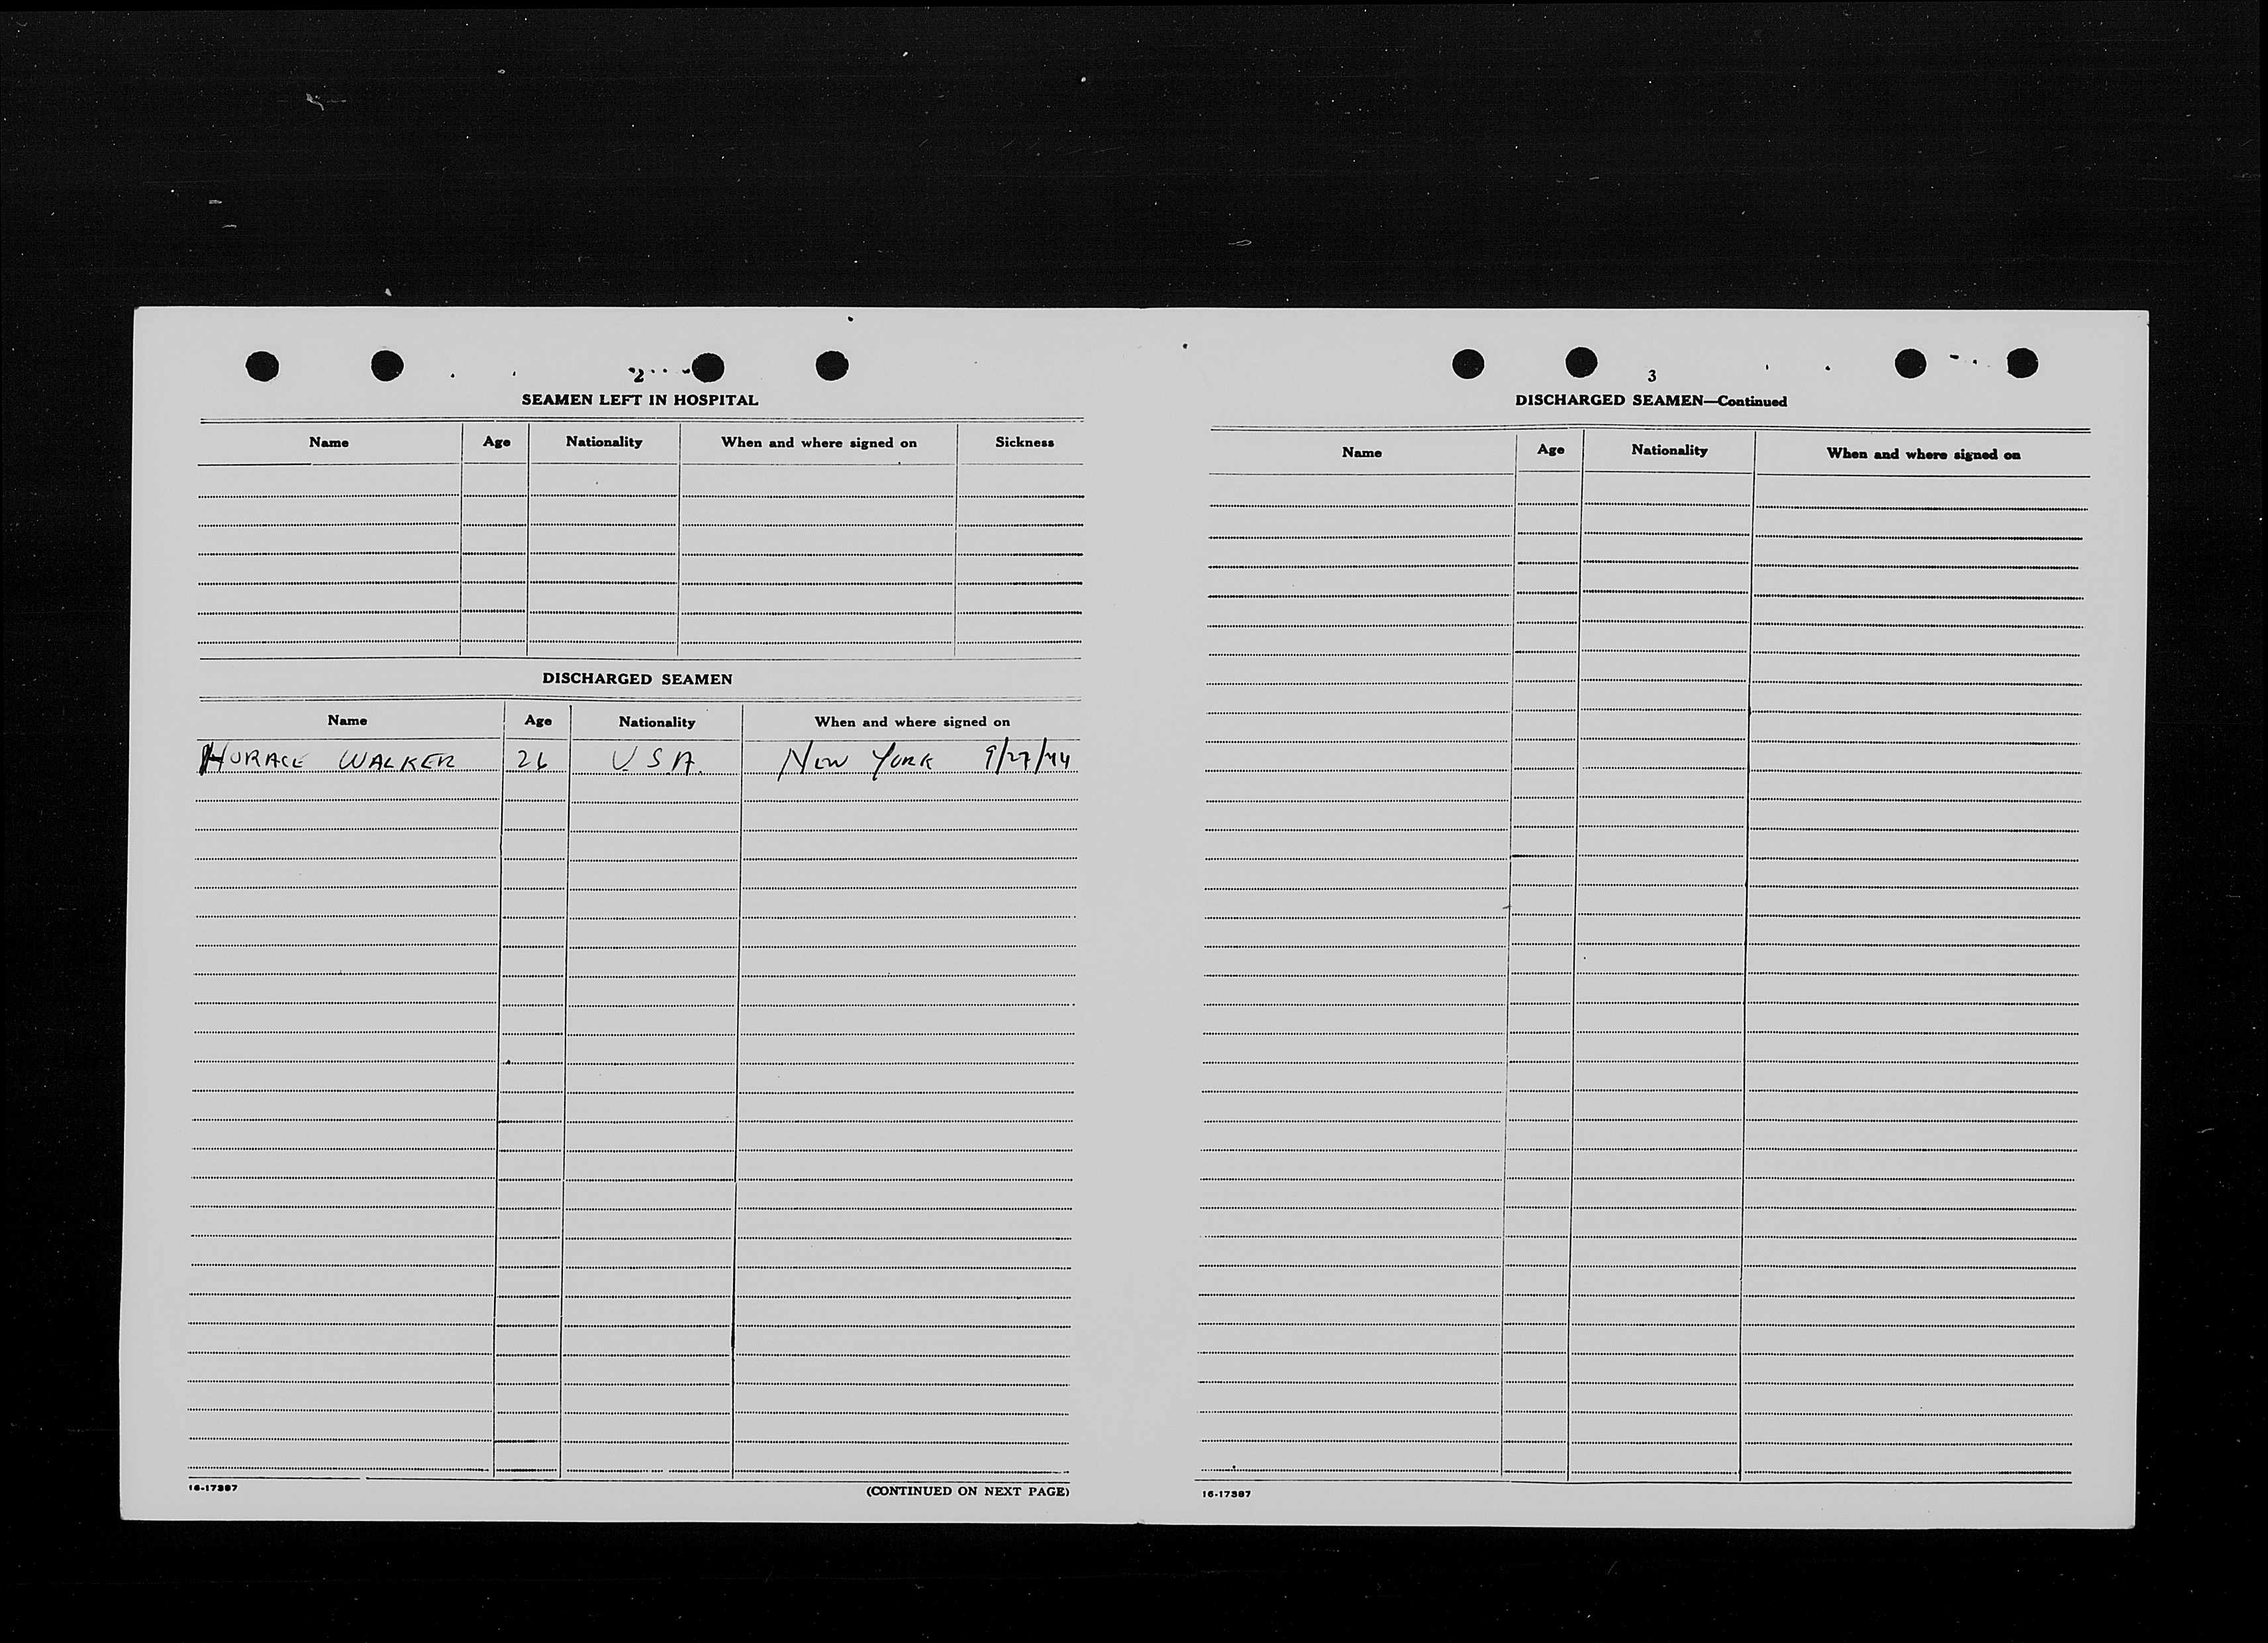 2
SEAMEN LEFT IN HOSPITAL
Name Age Nationality When and where signed on Sickness
DISCHARGED SEAMEN
Name Age Nationality When and where signed on
HORACE WALKER 26 U.S.A. NEW YORK 9/27/44
16-17397
(CONTINUED ON NEXT PAGE)
3
DISCHARGED SEAMEN—Continued
Name Age Nationality When and where signed on
16-17397